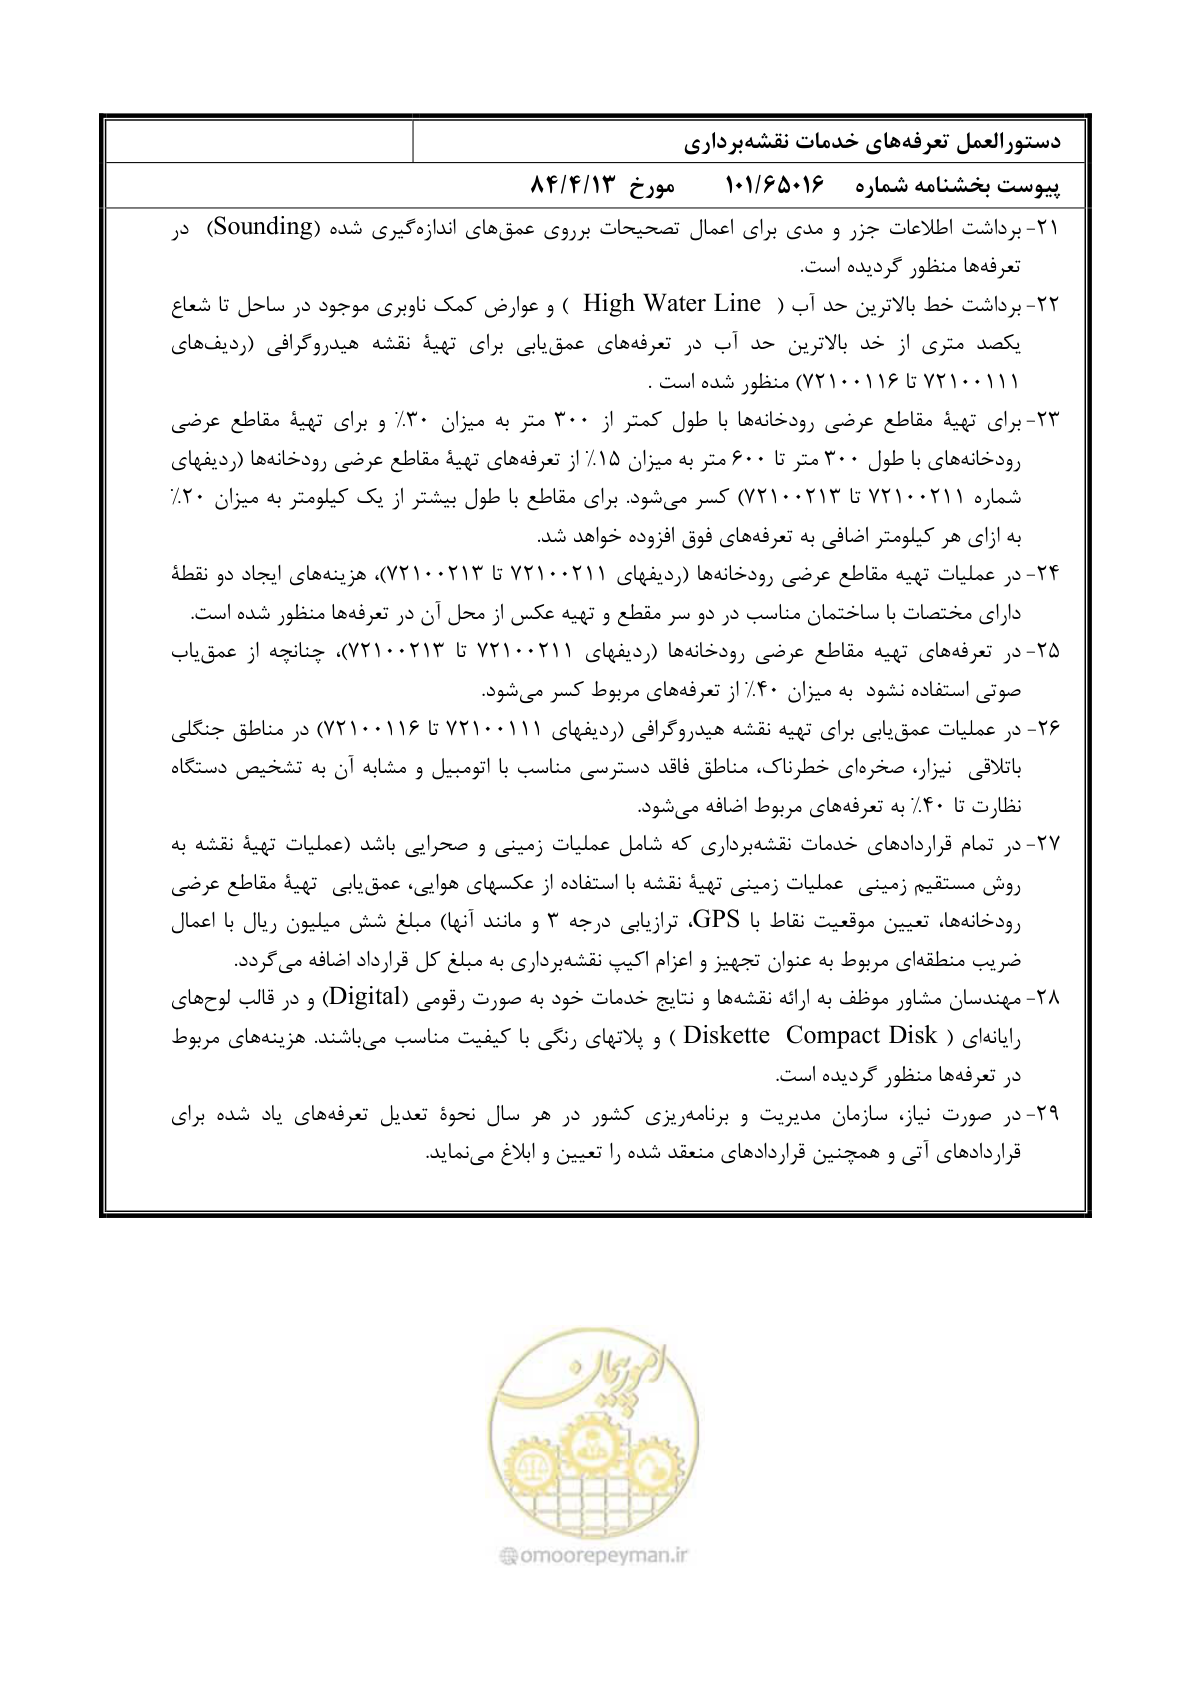 دستورالعمل تعرفه‌های خدمات نقشه‌برداری
پیوست بخشنامه شماره ۱۰۱/۶۵۰۱۶ مورخ ۸۴/۴/۱۳
۲۱- برداشت اطلاعات جزر و مدی برای اعمال تصحیحات برروی عمق‌های اندازه‌گیری شده (Sounding) در
تعرفه‌ها منظور گردیده است.
۲۲- برداشت خط بالاترین حد آب ( High Water Line ) و عوارض کمک ناوبری موجود در ساحل تا شعاع
یکصد متری از خد بالاترین حد آب در تعرفه‌های عمق‌یابی برای تهیۀ نقشه هیدروگرافی (ردیف‌های
۷۲۱۰۰۱۱۱ تا ۷۲۱۰۰۱۱۶) منظور شده است .
۲۳- برای تهیۀ مقاطع عرضی رودخانه‌ها با طول کمتر از ۳۰۰ متر به میزان ۳۰٪ و برای تهیۀ مقاطع عرضی
رودخانه‌های با طول ۳۰۰ متر تا ۶۰۰ متر به میزان ۱۵٪ از تعرفه‌های تهیۀ مقاطع عرضی رودخانه‌ها (ردیفهای
شماره ۷۲۱۰۰۲۱۱ تا ۷۲۱۰۰۲۱۳) کسر می‌شود. برای مقاطع با طول بیشتر از یک کیلومتر به میزان ۲۰٪
به ازای هر کیلومتر اضافی به تعرفه‌های فوق افزوده خواهد شد.
۲۴- در عملیات تهیه مقاطع عرضی رودخانه‌ها (ردیفهای ۷۲۱۰۰۲۱۱ تا ۷۲۱۰۰۲۱۳)، هزینه‌های ایجاد دو نقطۀ
دارای مختصات با ساختمان مناسب در دو سر مقطع و تهیه عکس از محل آن در تعرفه‌ها منظور شده است.
۲۵- در تعرفه‌های تهیه مقاطع عرضی رودخانه‌ها (ردیفهای ۷۲۱۰۰۲۱۱ تا ۷۲۱۰۰۲۱۳)، چنانچه از عمق‌یاب
صوتی استفاده نشود به میزان ۴۰٪ از تعرفه‌های مربوط کسر می‌شود.
۲۶- در عملیات عمق‌یابی برای تهیه نقشه هیدروگرافی (ردیفهای ۷۲۱۰۰۱۱۱ تا ۷۲۱۰۰۱۱۶) در مناطق جنگلی
باتلاقی نیزار، صخره‌ای خطرناک، مناطق فاقد دسترسی مناسب با اتومبیل و مشابه آن به تشخیص دستگاه
نظارت تا ۴۰٪ به تعرفه‌های مربوط اضافه می‌شود.
۲۷- در تمام قراردادهای خدمات نقشه‌برداری که شامل عملیات زمینی و صحرایی باشد (عملیات تهیۀ نقشه به
روش مستقیم زمینی عملیات زمینی تهیۀ نقشه با استفاده از عکسهای هوایی، عمق‌یابی تهیۀ مقاطع عرضی
رودخانه‌ها، تعیین موقعیت نقاط با GPS، ترازیابی درجه ۳ و مانند آنها) مبلغ شش میلیون ریال با اعمال
ضریب منطقه‌ای مربوط به عنوان تجهیز و اعزام اکیپ نقشه‌برداری به مبلغ کل قرارداد اضافه می‌گردد.
۲۸- مهندسان مشاور موظف به ارائه نقشه‌ها و نتایج خدمات خود به صورت رقومی (Digital) و در قالب لوح‌های
رایانه‌ای ( Diskette Compact Disk ) و پلاتهای رنگی با کیفیت مناسب می‌باشند. هزینه‌های مربوط
در تعرفه‌ها منظور گردیده است.
۲۹- در صورت نیاز، سازمان مدیریت و برنامه‌ریزی کشور در هر سال نحوۀ تعدیل تعرفه‌های یاد شده برای
قراردادهای آتی و همچنین قراردادهای منعقد شده را تعیین و ابلاغ می‌نماید.
امور پیمان
omoorepeyman.ir